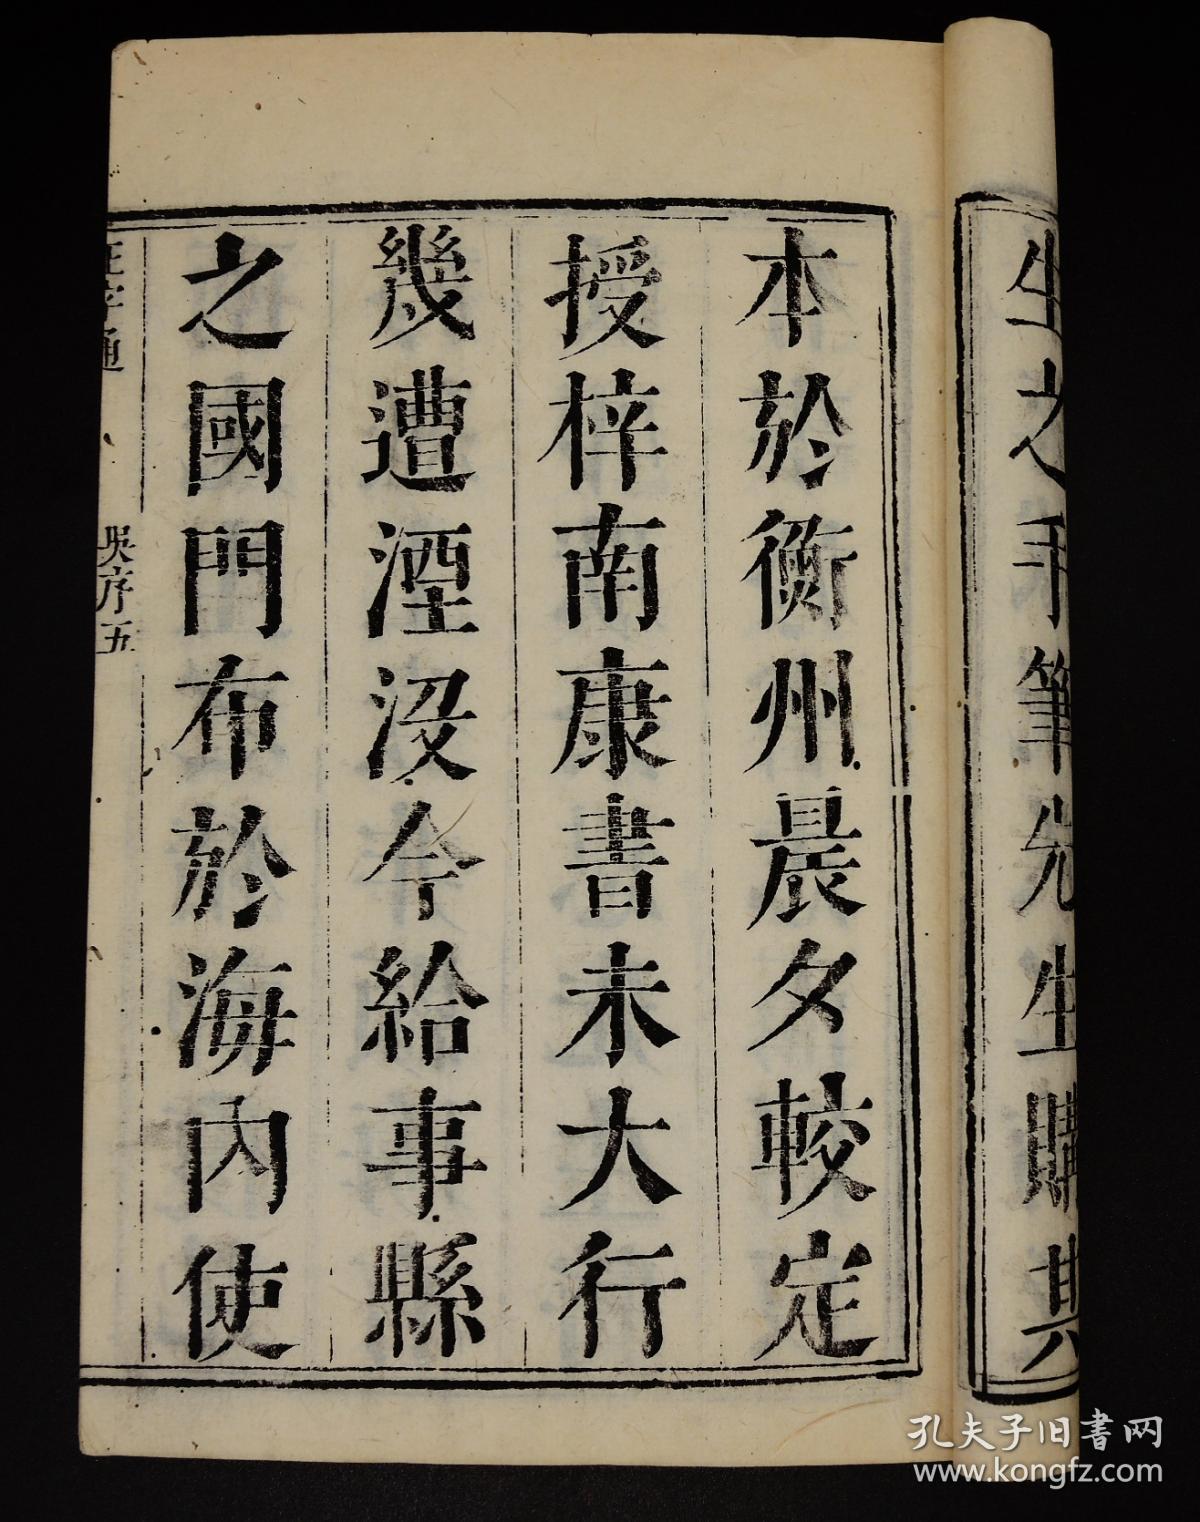 生之手筆先生購其
本於衡州晨夕較定
授梓南康書未大行
幾遭湮沒今給事縣
之國門布於海內使
正字通
吳序五
孔夫子旧書网
www.kongfz.com